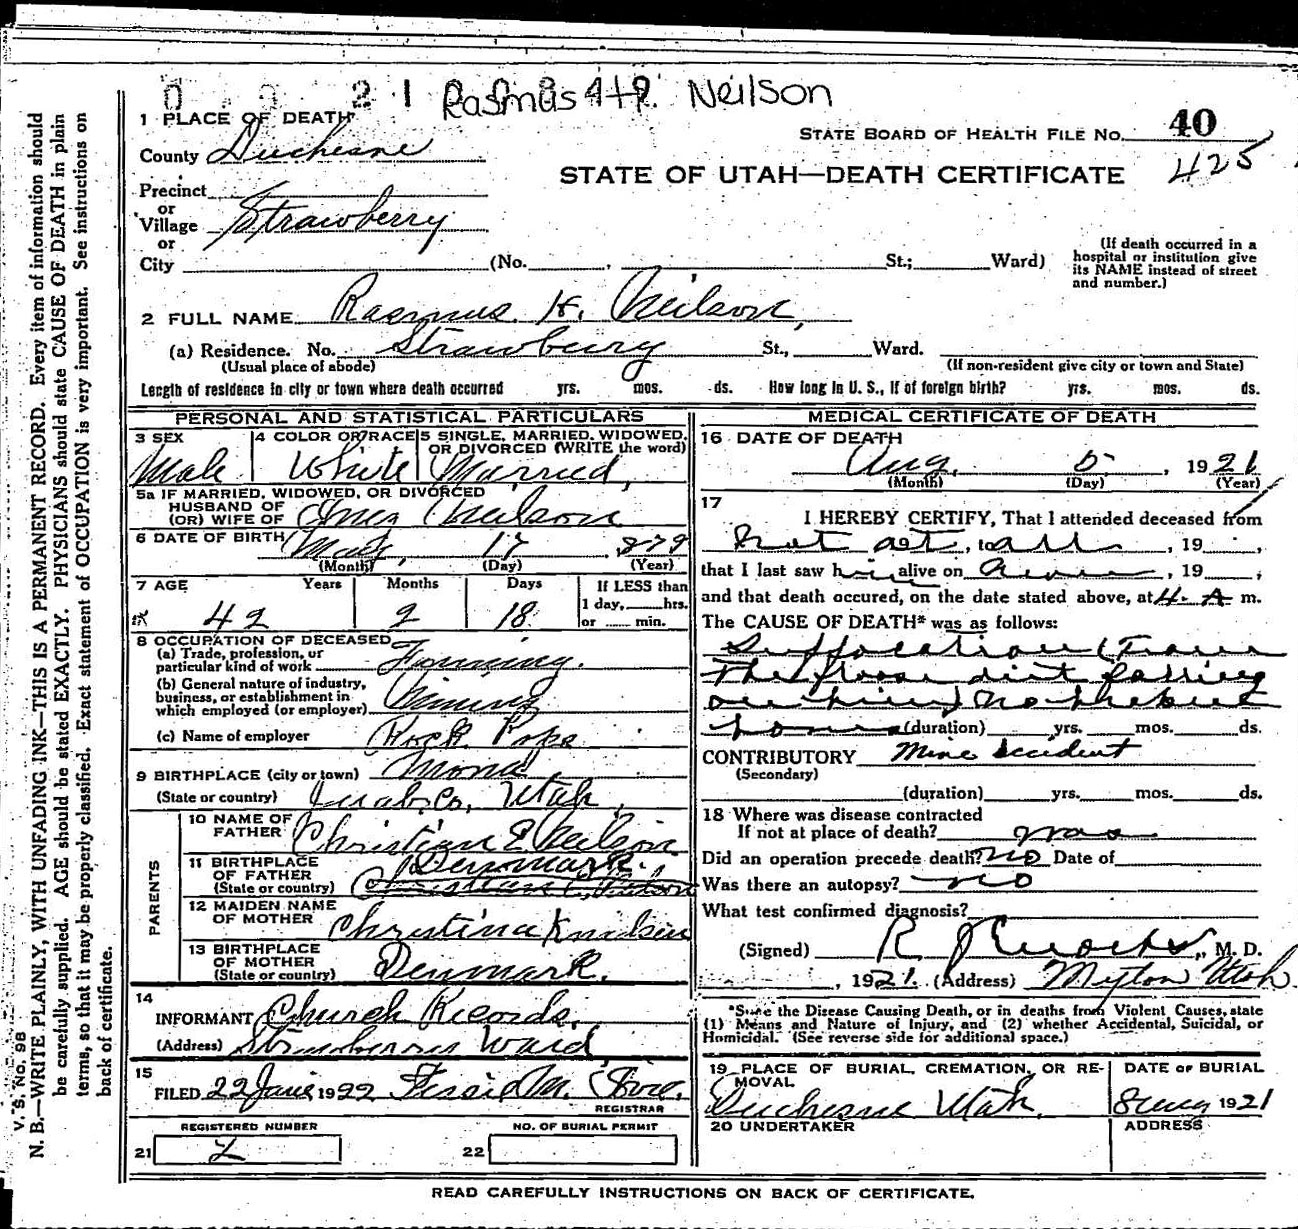 0 0 2 1 Rasmus H. Neilson
1 PLACE OF DEATH
STATE BOARD OF HEALTH FILE NO. 40
County Duchesne
425
STATE OF UTAH—DEATH CERTIFICATE
Precinct
or
Village Strawberry
or
City (No. , St.; Ward)
(If death occurred in a
hospital or institution give
its NAME instead of street
and number.)
2 FULL NAME Rasmus H. Neilson,
(a) Residence. No. Strawberry St., Ward.
(Usual place of abode) (If non-resident give city or town and State)
Length of residence in city or town where death occurred yrs. mos. ds. How long in U. S., if of foreign birth? yrs. mos. ds.
PERSONAL AND STATISTICAL PARTICULARS
3 SEX Male
4 COLOR OR RACE White
5 SINGLE, MARRIED, WIDOWED,
OR DIVORCED (WRITE the word)
Married,
5a IF MARRIED, WIDOWED, OR DIVORCED
HUSBAND OF
(OR) WIFE OF Inez Neilson
6 DATE OF BIRTH May, 17, 879
(Month) (Day) (Year)
7 AGE Years Months Days If LESS than
1 day, hrs.
or min.
42 2 18
8 OCCUPATION OF DECEASED
(a) Trade, profession, or
particular kind of work Farming.
(b) General nature of industry,
business, or establishment in
which employed (or employer) Mining
(c) Name of employer
9 BIRTHPLACE (city or town) Mona,
(State or country) Juab, Co, Utah,
PARENTS
10 NAME OF
FATHER Christian E Neilson
11 BIRTHPLACE
OF FATHER
(State or country) Denmark.
12 MAIDEN NAME
OF MOTHER Christina
13 BIRTHPLACE
OF MOTHER
(State or country) Denmark.
14
INFORMANT Church Records.
(Address) Strawberry Ward
15
FILED 22 June 1922
REGISTRAR
REGISTERED NUMBER
21 2
NO. OF BURIAL PERMIT
22
MEDICAL CERTIFICATE OF DEATH
16 DATE OF DEATH
Aug. 5, 1921
(Month) (Day) (Year)
17
I HEREBY CERTIFY, That I attended deceased from
Not at, to all, 19 ,
that I last saw him alive on , 19 ,
and that death occured, on the date stated above, at 4. A m.
The CAUSE OF DEATH* was as follows:
Suffocation (From
The loose dirt falling
on him)
(duration) yrs. mos. ds.
CONTRIBUTORY Mine accident
(Secondary)
(duration) yrs. mos. ds.
18 Where was disease contracted
If not at place of death? was
Did an operation precede death? no Date of
Was there an autopsy? no
What test confirmed diagnosis?
(Signed) R J Enochs, M. D.
, 1921. (Address) Myton Utah.
*State the Disease Causing Death, or in deaths from Violent Causes, state
(1) Means and Nature of Injury, and (2) whether Accidental, Suicidal, or
Homicidal. (See reverse side for additional space.)
19 PLACE OF BURIAL, CREMATION, OR RE-
MOVAL
Duchesne Utah.
DATE OF BURIAL
8 Aug 1921
20 UNDERTAKER
ADDRESS
READ CAREFULLY INSTRUCTIONS ON BACK OF CERTIFICATE.
V. S. No. 98
N. B.—WRITE PLAINLY, WITH UNFADING INK—THIS IS A PERMANENT RECORD. Every item of information should
be carefully supplied. AGE should be stated EXACTLY. PHYSICIANS should state CAUSE OF DEATH in plain
terms, so that it may be properly classified. Exact statement of OCCUPATION is very important. See instructions on
back of certificate.